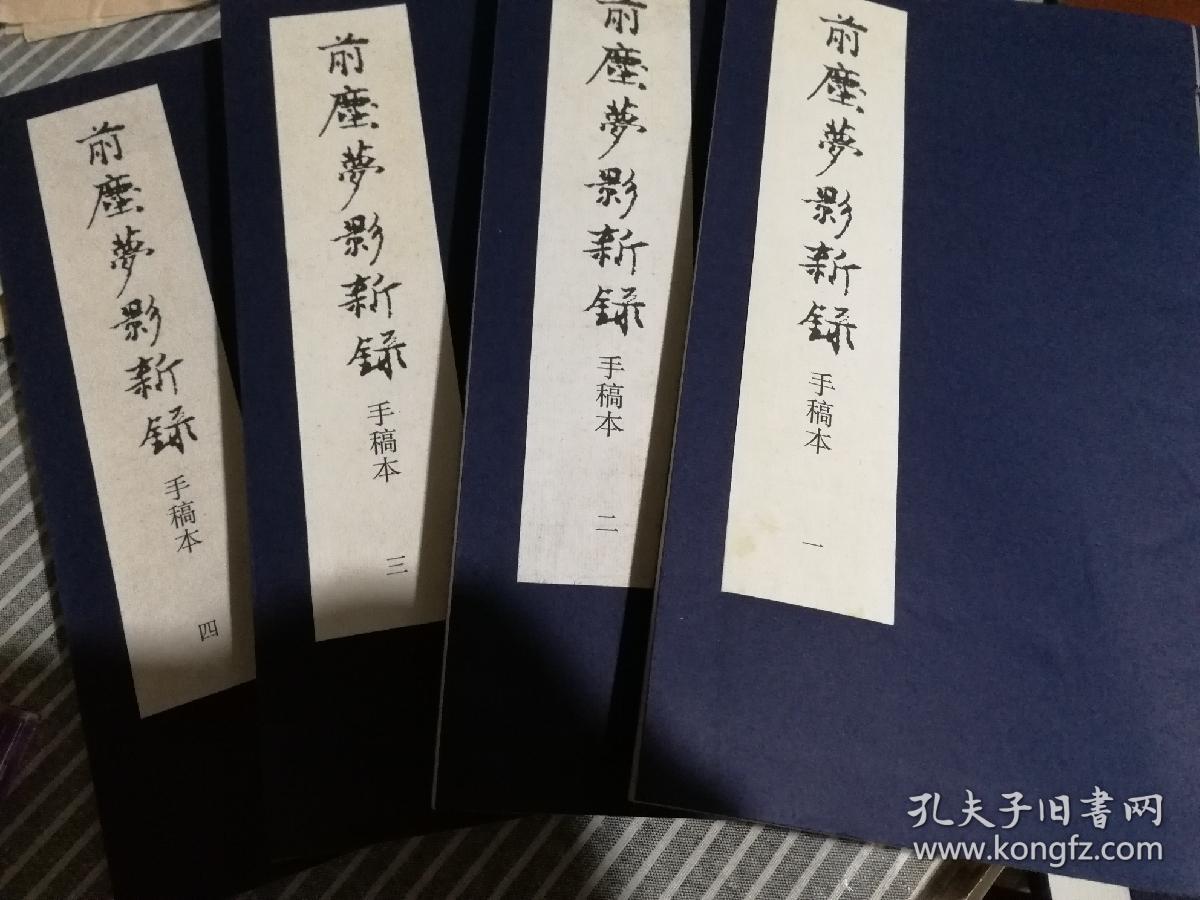 前塵夢影新録
手稿本
一
前塵夢影新録
手稿本
二
前塵夢影新録
手稿本
三
前塵夢影新録
手稿本
四
孔夫子旧書网
www.kongfz.com